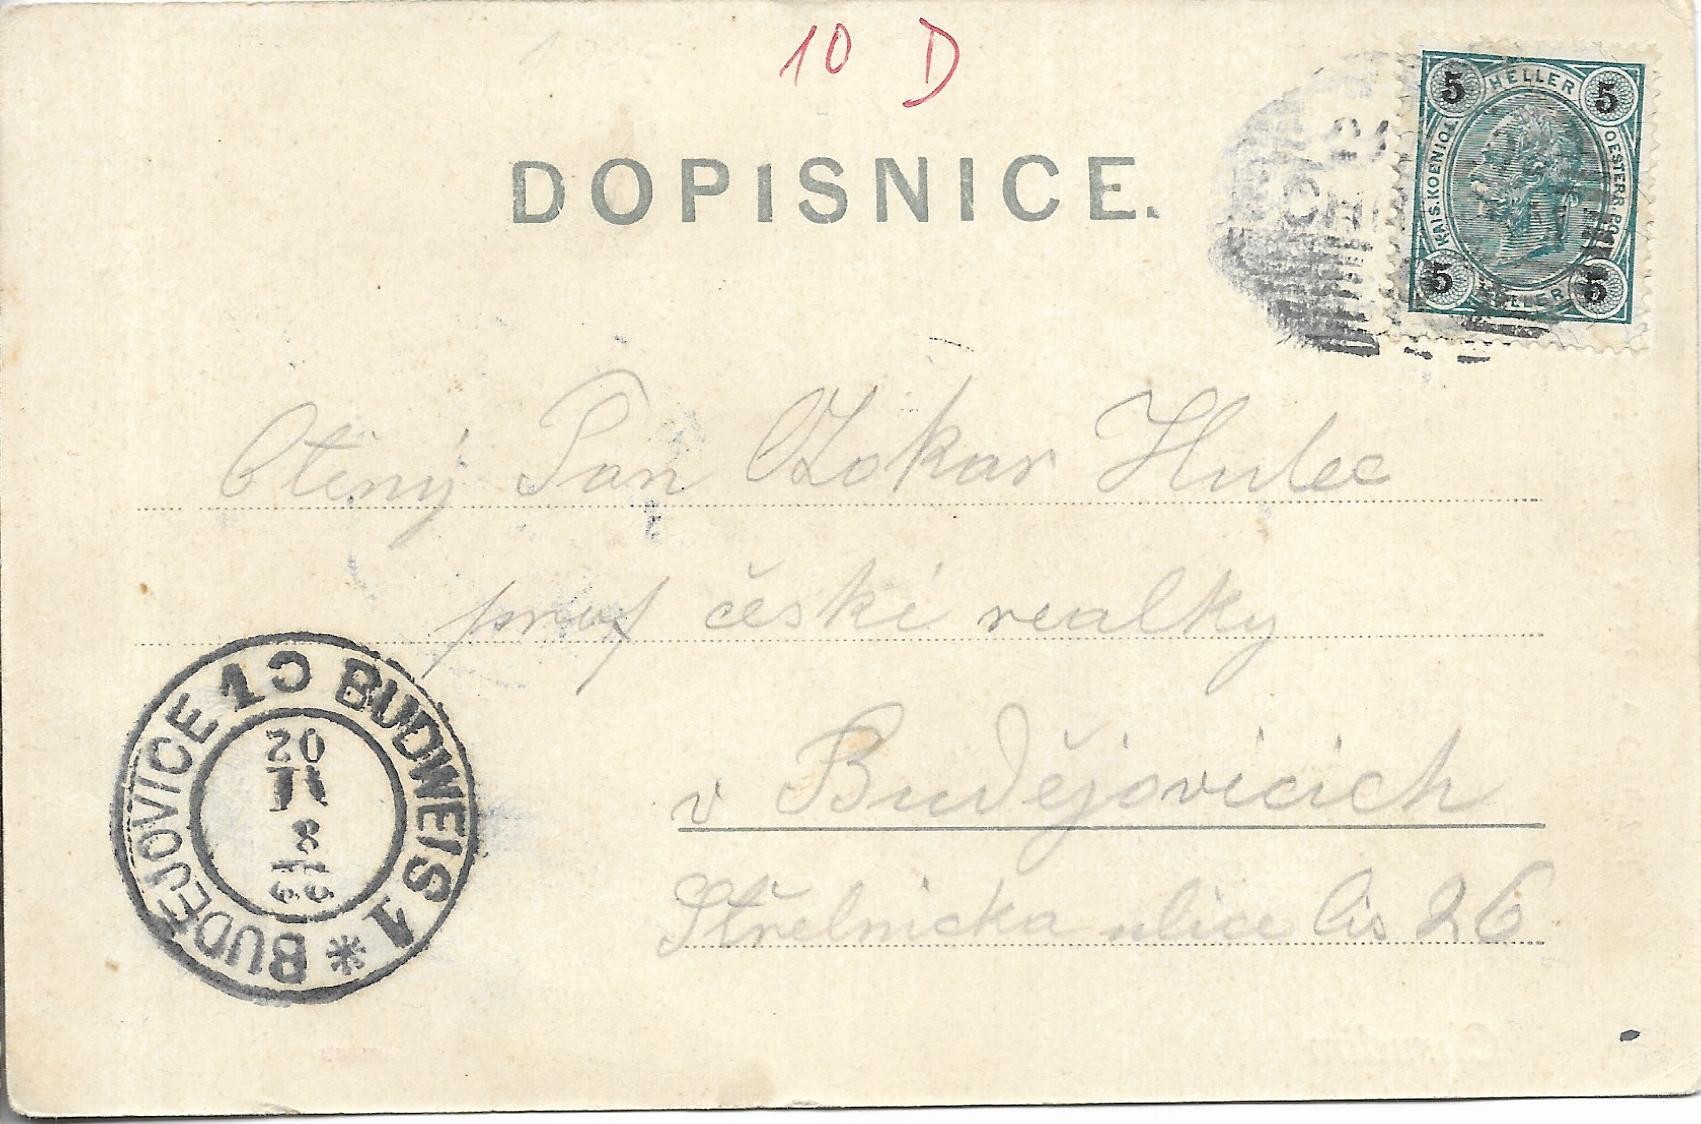 10 D
DOPISNICE.
5 HELLER 5
KAIS. KOENIGL. OESTERR. POST
5 HELLER 5
Ctěný Pan Otokar Hulec
prof české realky
v Budějovicích
Střelnicka ulice čis 26
BUDĚJOVICE 1 BUDWEIS 1